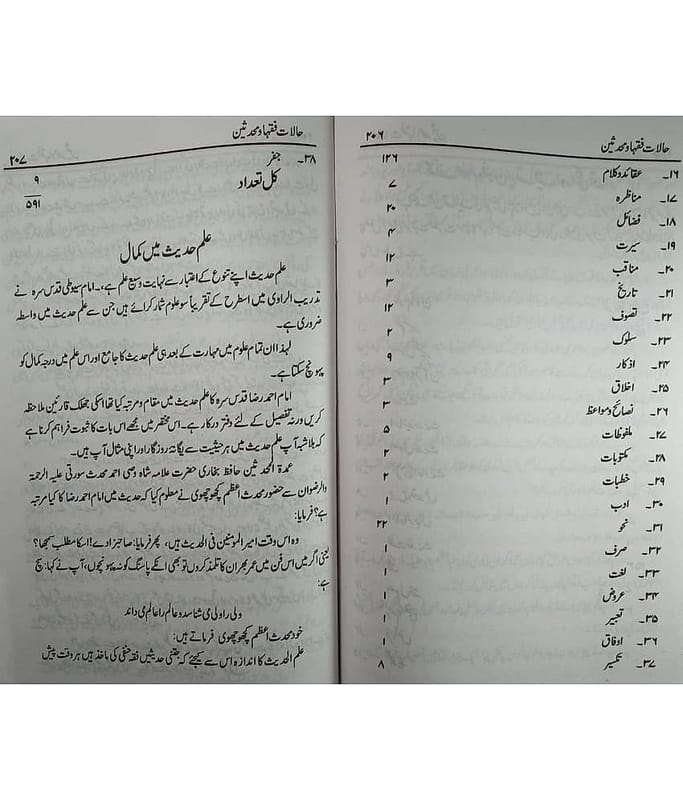 حالات فقہا و محدثین ۲۰۶
۱۶۔ عقائد و کلام ۱۲۶
۱۷۔ مناظرہ ۷
۱۸۔ فضائل ۲۰
۱۹۔ سیرت ۴
۲۰۔ مناقب ۱۲
۲۱۔ تاریخ ۳
۲۲۔ تصوف ۱۲
۲۳۔ سلوک ۲
۲۴۔ اذکار ۹
۲۵۔ اخلاق ۳
۲۶۔ نصائح و مواعظ ۳
۲۷۔ ملفوظات ۵
۲۸۔ مکتوبات ۲
۲۹۔ خطبات ۲
۳۰۔ ادب ۱
۳۱۔ نحو ۲۲
۳۲۔ صرف ۱
۳۳۔ لغت ۱
۳۴۔ عروض ۱
۳۵۔ تعبیر ۱
۳۶۔ اوفاق ۱
۳۷۔ تکسیر ۸
حالات فقہا و محدثین ۲۰۷
۳۸۔ جفر ۹
کل تعداد ۵۹۱
علم حدیث میں کمال
علم حدیث اپنے تنوع کے اعتبار سے نہایت وسیع علم ہے،۔ امام سیوطی قدس سرہ نے
تدریب الراوی میں اسطرح کے تقریباً سو علوم شمار کرائے ہیں جن سے علم حدیث میں واسطہ
ضروری ہے۔
لہذا ان تمام علوم میں مہارت کے بعد ہی علم حدیث کا جامع اور اس علم میں درجہ کمال کو
پہونچ سکتا ہے۔
امام احمد رضا قدس سرہ کا علم حدیث میں مقام و مرتبہ کیا تھا اسکی جھلک قارئین ملاحظہ
کریں ورنہ تفصیل کے لئے دفتر درکار ہے۔ اس مختصر میں مجھے اس بات کا ثبوت فراہم کرنا ہے
کہ بلاشبہ آپ علم حدیث میں ہر حیثیت سے یگانۂ روزگار اور اپنی مثال آپ ہیں۔
عمدۃ المحدثین حافظ بخاری حضرت علامہ شاہ وصی احمد محدث سورتی علیہ الرحمۃ
والرضوان سے حضور محدث اعظم کچھوچھوی نے معلوم کیا کہ حدیث میں امام احمد رضا کا کیا مرتبہ
ہے؟ فرمایا:
وہ اس وقت امیر المومنین فی الحدیث ہیں، پھر فرمایا: صاحبزادے! اسکا مطلب سمجھا؟
یعنی اگر میں اس فن میں عمر بھر ان کا تلمذ کروں تو بھی انکے پاسنگ کو نہ پہونچوں، آپ نے کہا: سچ
ہے:
ولی را ولی می شناسد و عالم را عالم می داند
خود محدث اعظم کچھوچھوی فرماتے ہیں:
علم الحدیث کا اندازہ اس سے کیجئے کہ جتنی حدیثیں فقہ حنفی کی ماخذ ہیں ہر وقت پیش